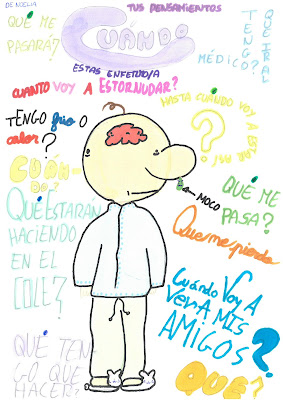 DE NOELIA
TUS PENSAMIENTOS
CUÁNDO
ESTAS ENFERMO/A
QUÉ ME
PASARÁ?
TENGO
QUE IR AL
MÉDICO?
CUANTO VOY A ESTORNUDAR?
HASTA CUÁNDO VOY A ESTAR
ASÍ
?
TENGO frio O
calor?
CUÁN-
DO?
MOCO
QUÉ ME
PASA?
QUÉ ESTARÁN
HACIENDO
EN EL
COLE?
Que me pierdo
CUándo VOY A
VER A MIS
AMIGOS?
QUÉ TEN-
GO QUE
HACER?
QUE?